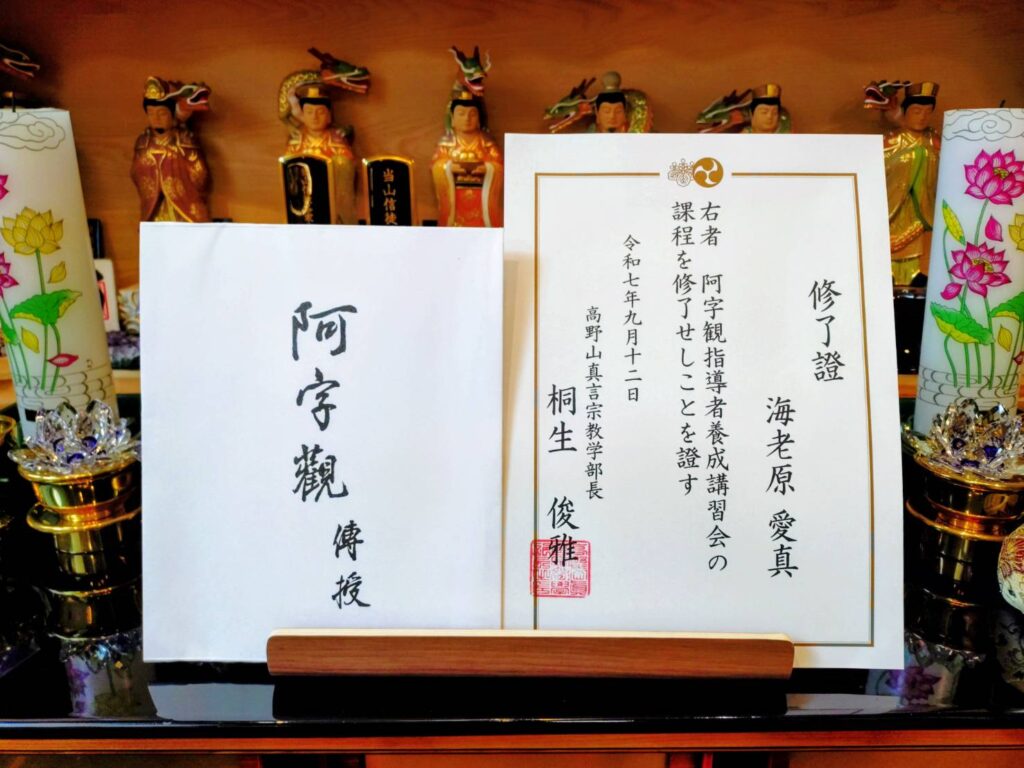 修了證
海老原 愛真
右者 阿字観指導者養成講習会の
課程を修了せしことを證す
令和七年九月十二日
高野山真言宗教学部長
桐生 俊雅
阿字觀
傳授
当山信徒